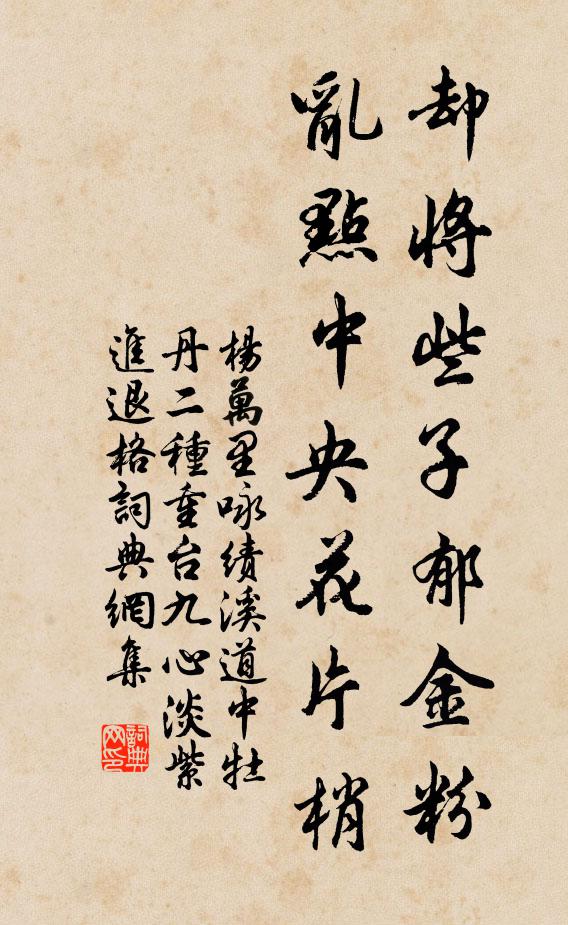 却將些子郁金粉
亂點中央花片梢
楊萬里咏績溪道中牡
丹二種重台九心淡紫
進退格詞典網集
詞典
网印